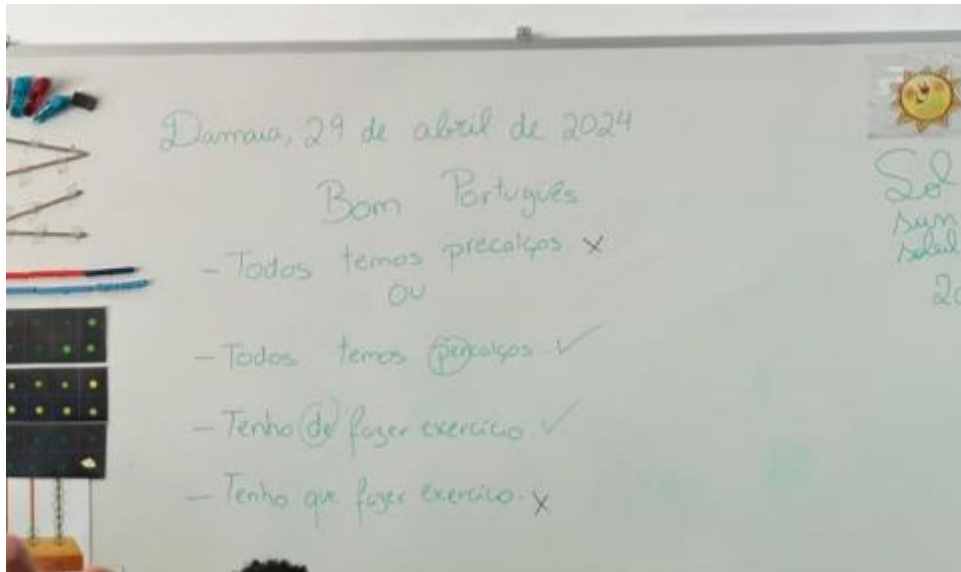 Damaia, 29 de abril de 2024
Bom Português
- Todos temos precalços x
OU
- Todos temos percalços ✓
- Tenho de fazer exercício ✓
- Tenho que fazer exercico. x
Sol
sun
soleil